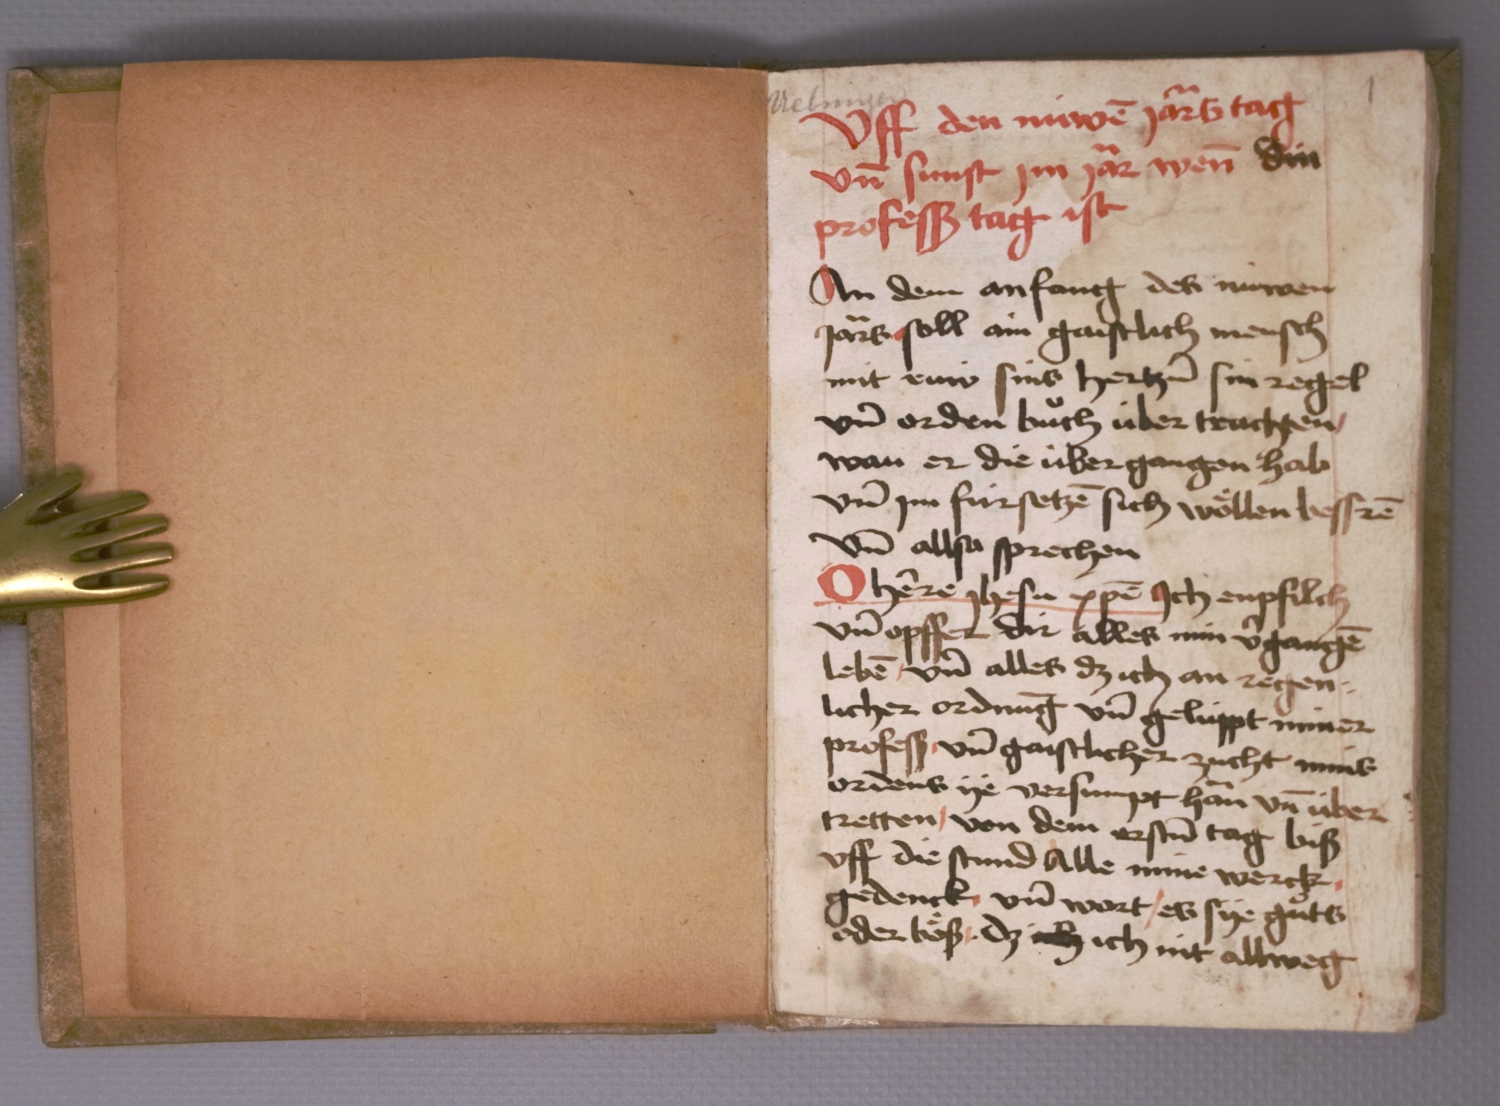 1
Vff den nüwē jārs tag
vn̄ sunst jm jār wen̄ din
professz tag ist
An dem anfang des nüwen
jārs soll ain gaistlich mensch
mit rüw sins hertzn̄ sin regel
vn̄ orden bůch über trachten
wan er die über gangen hab
vn̄ jm fürsetzē sich wöllen bessrē
vn̄ allso sprechen
O hēre jhesu xpē Ich enpfilch
vn̄ opffer dir alles min v̄gangē
lebē vn̄ alles dz ich an regen-
licher ordnūg vn̄ gelüppt miner
professz vn̄ gaistlicher zucht mins
ordens ye versumpt hān vn̄ über
tretten von dem erstn̄ tag bisz
vff die stund Alle mine werck
gedenck vn̄ wort es sye gůts
oder bösz dz ich nit allweg